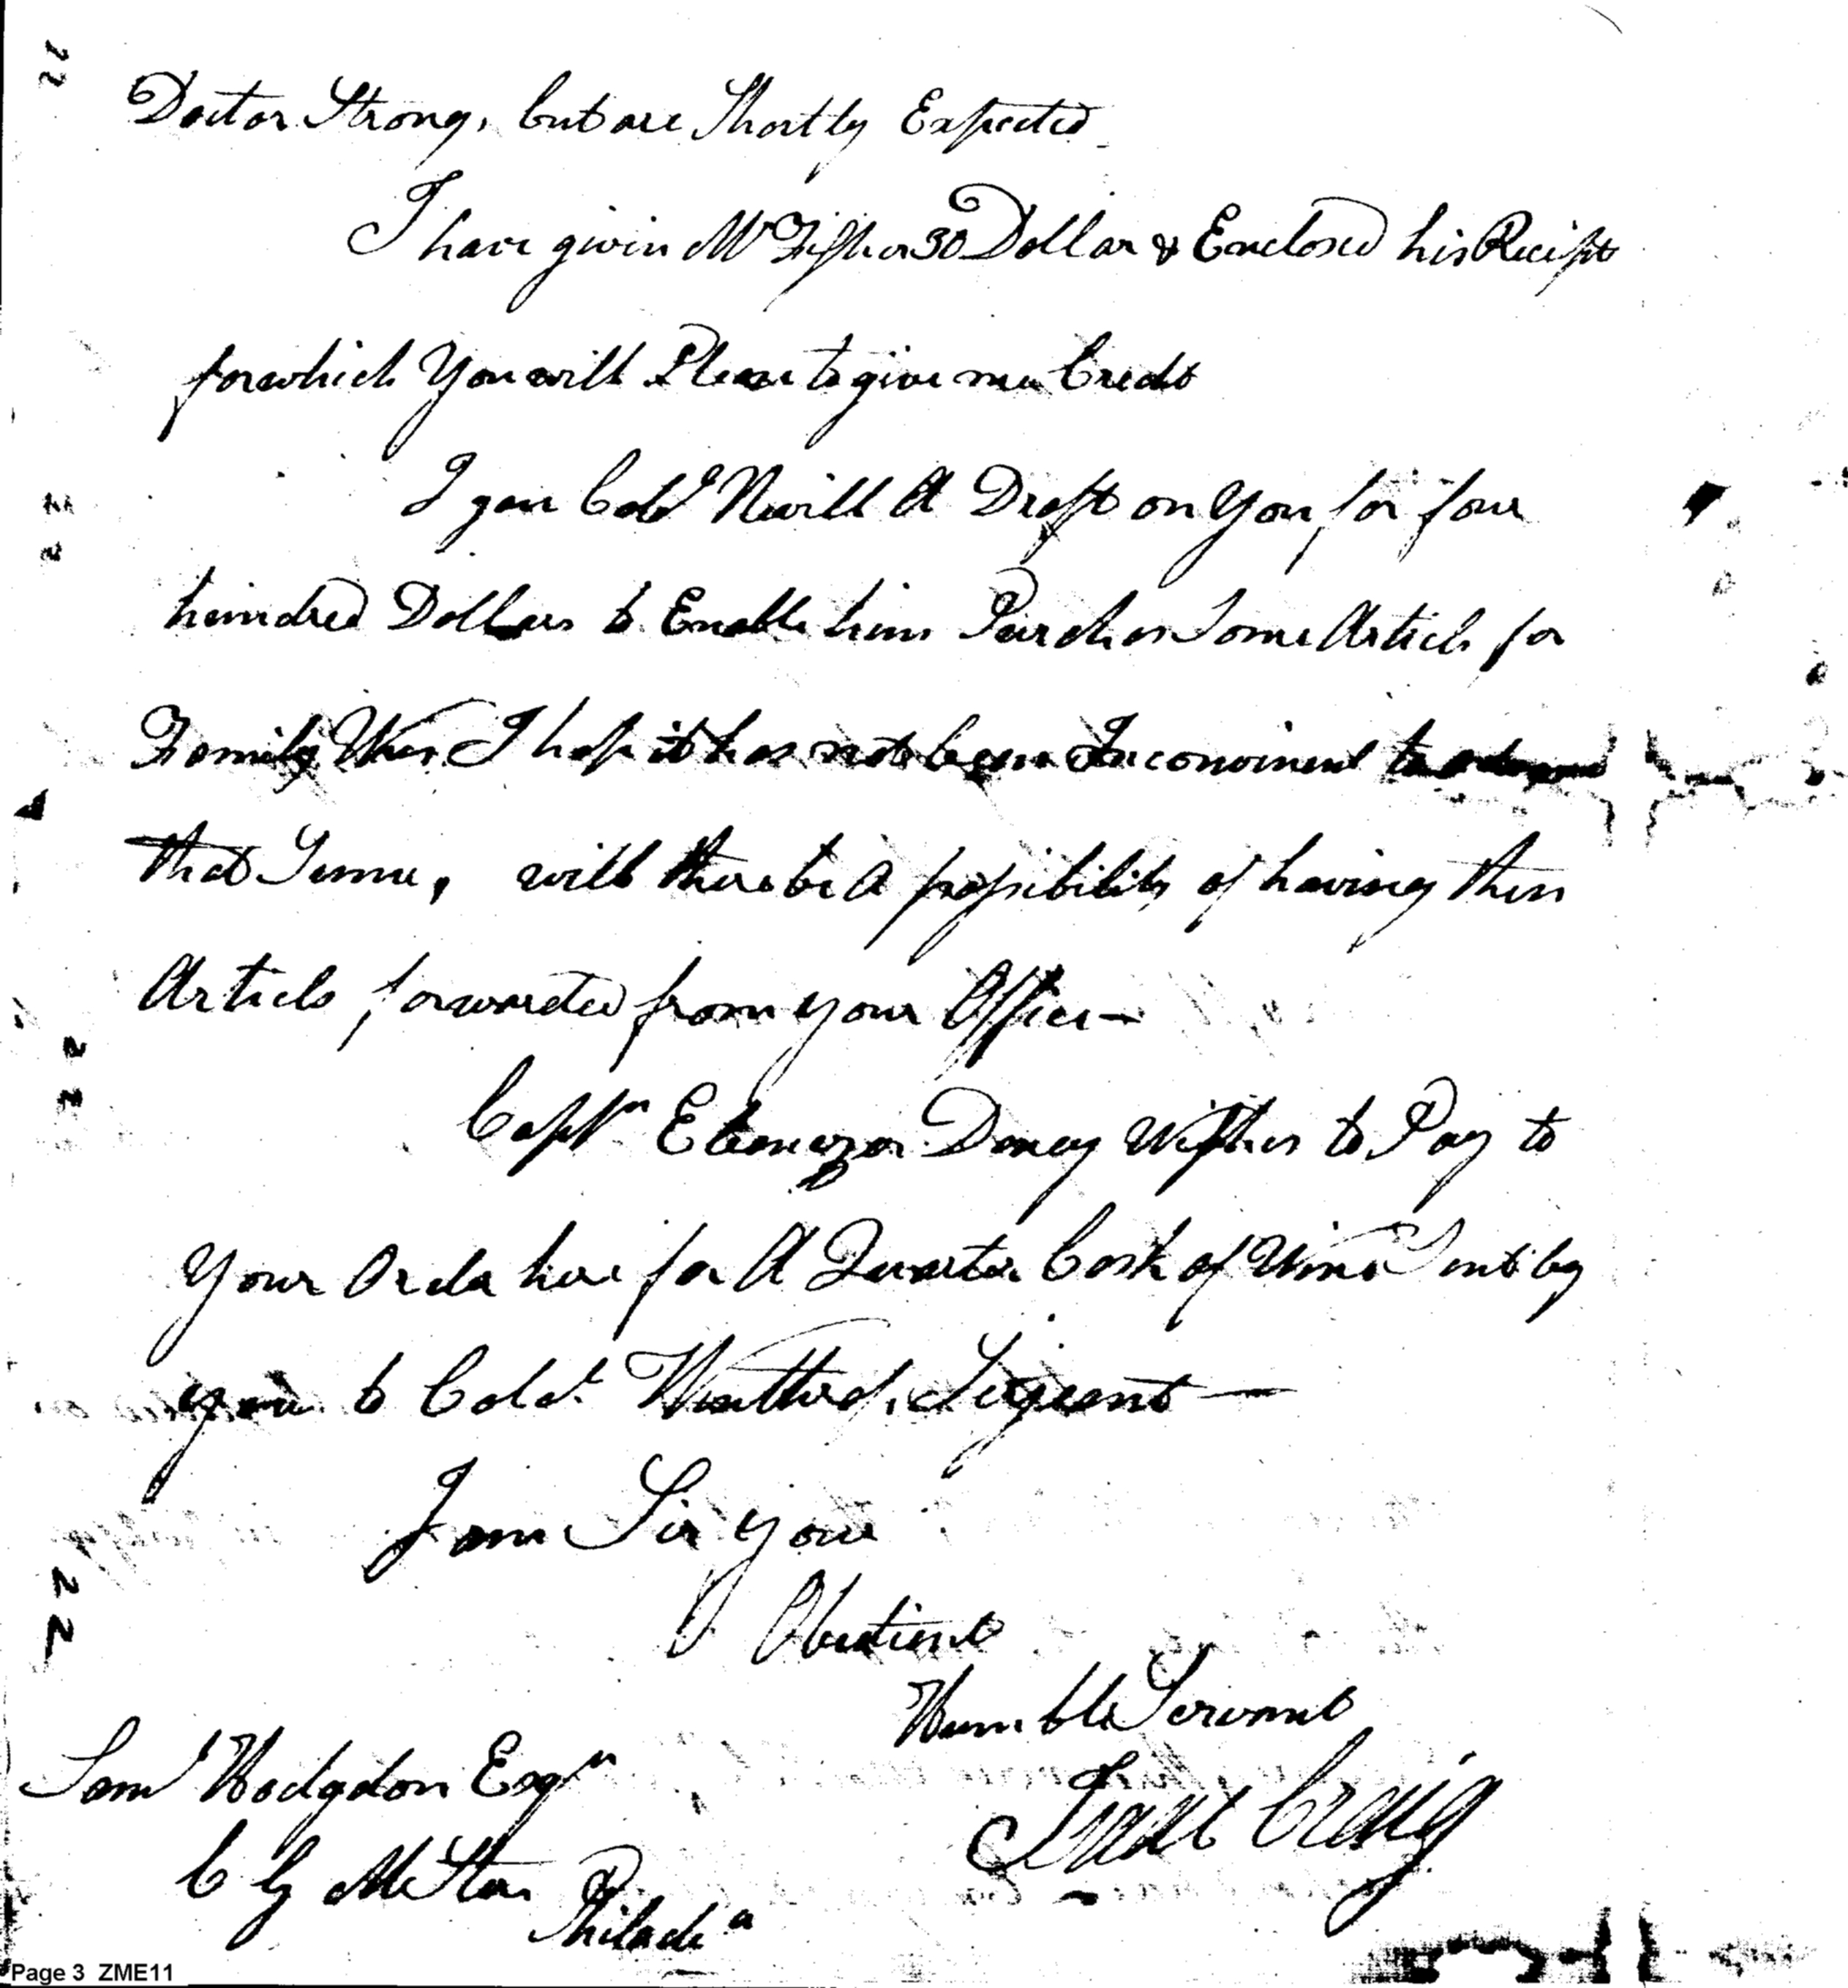 Doctor Strong, but are Shortly Expected
I have givin Mr Fisher 30 Dollar & Enclosed his Recipt
for which You will Please to give me Credit
I gave Colo Nevill A Draft on You for four
hundred Dollars to Enable him Purches Some Articls for
Family Uses I hope it has not been Inconvinent
that Time, will there be A possibility of having them
Articls forwarded from your Office—
Captn Ebenezer Denny Wishes to Pay to
Your Order here for A Quarter Cask of Wine Sent by
you to Colol Winthrop Sergeant —
I am Sir your
Obedient
Humble Servant
Isaac Craig
Saml Hodgdon Esqr
Philada
Page 3 ZME11